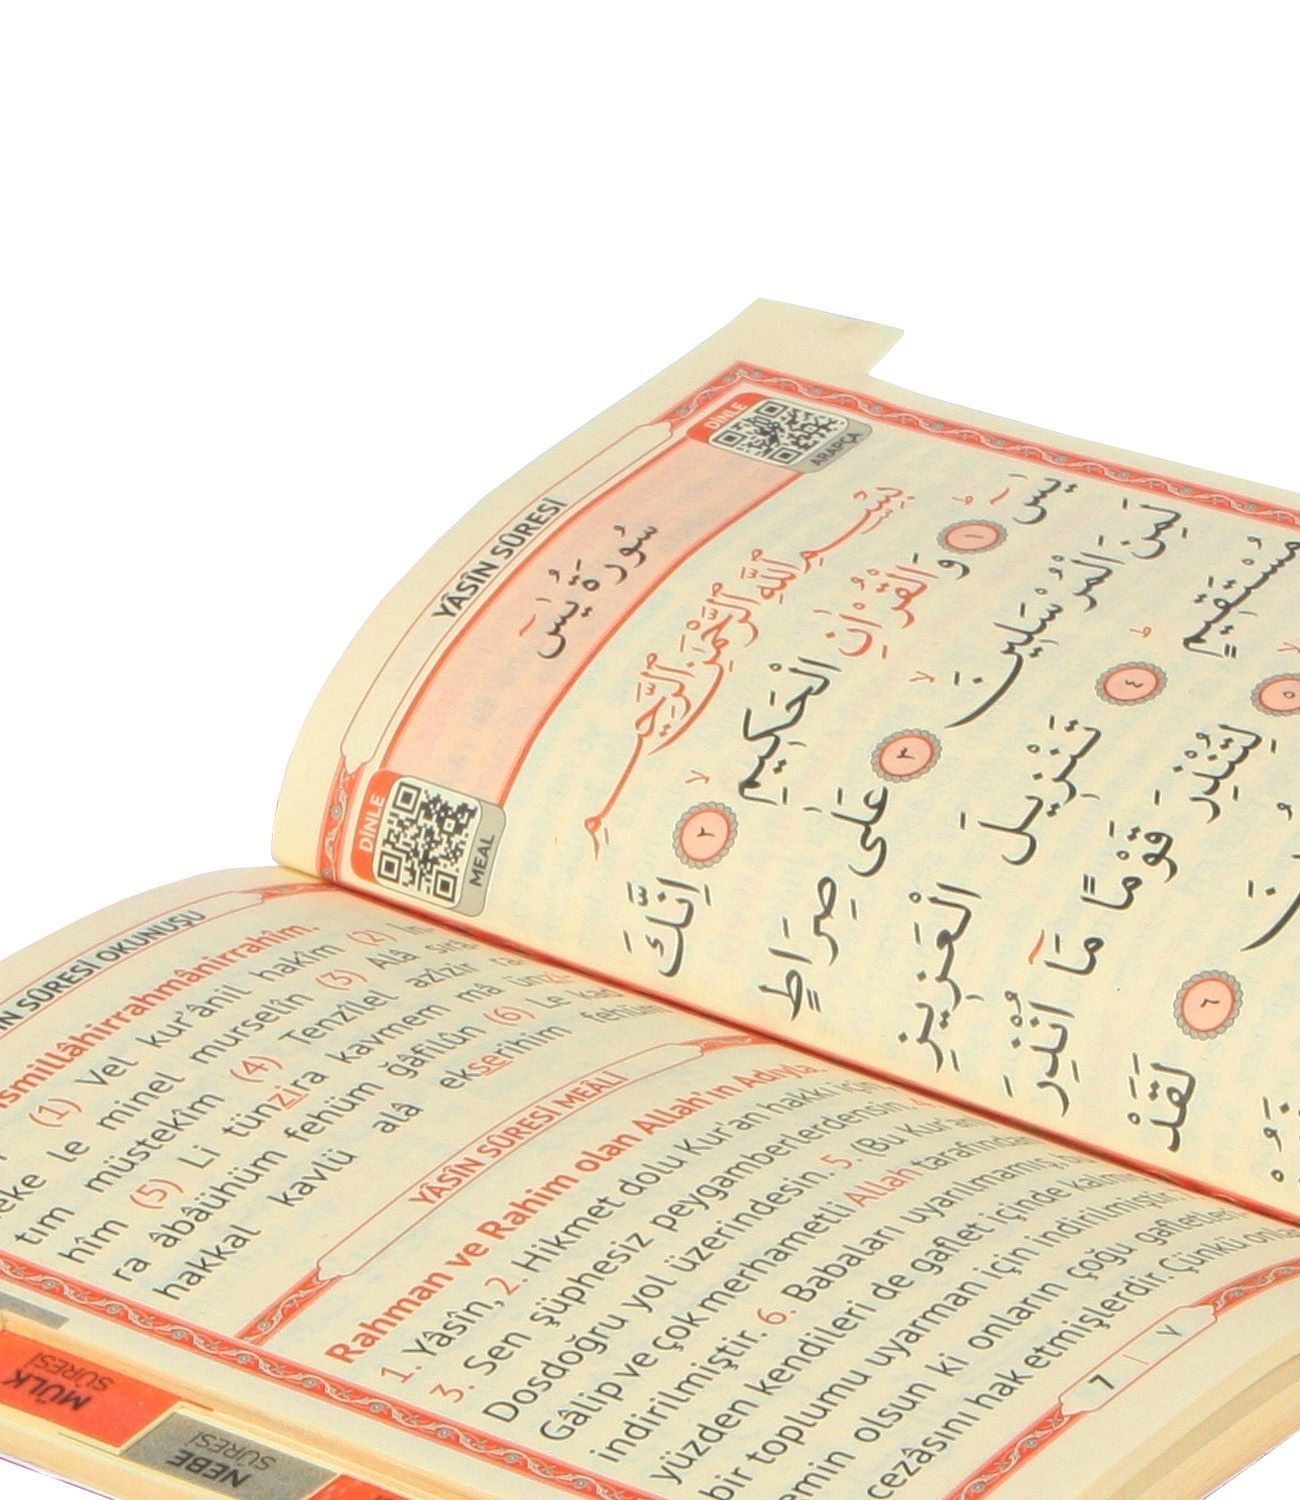 YÂSÎN SÛRESİ
DİNLE
ARAPÇA
سُورَةُ يٰسٓ
DİNLE
MEAL
بِسْمِ اللّٰهِ الرَّحْمٰنِ الرَّحِيمِ
يٰسٓ ۚ ١ وَالْقُرْاٰنِ الْحَكِيمِ ۙ ٢ اِنَّكَ
لَمِنَ الْمُرْسَلِينَ ۙ ٣ عَلٰى صِرَاطٍ
مُسْتَقِيمٍ ۜ ٤ تَنْزِيلَ الْعَزِيزِ
٥ لِتُنْذِرَ قَوْمًا مَٓا اُنْذِرَ
٦ لَقَدْ
N SÛRESİ OKUNUŞU
ismillâhirrahmânirrahîm.
(1) Vel kur'ânil hakîm (2) İn-
neke le minel murselîn (3) Alâ sırâ-
tım müstekîm (4) Tenzîlel azîzir ra
hîm (5) Li tünzira kavmem mâ ünzi-
ra âbâühüm fehüm ğâfilûn (6) Le kad
hakkal kavlü alâ ekserihim fehüm
YÂSÎN SÛRESİ MEÂLİ
Rahman ve Rahim olan Allah'ın Adıyla.
1. Yâsîn, 2. Hikmet dolu Kur'an hakkı için
3. Sen şüphesiz peygamberlerdensin. 4.
Dosdoğru yol üzerindesin. 5. (Bu Kur'an
Gâlip ve çok merhametli Allah tarafından
indirilmiştir. 6. Babaları uyarılmamış, bu
yüzden kendileri de gaflet içinde kalmış
bir toplumu uyarman için indirilmiştir.
emin olsun ki onların çoğu gafletleri
cezâsını hak etmişlerdir. Çünkü onlar
7 | ٧
MÜLK
SÛRESİ
NEBE
SÛRESİ